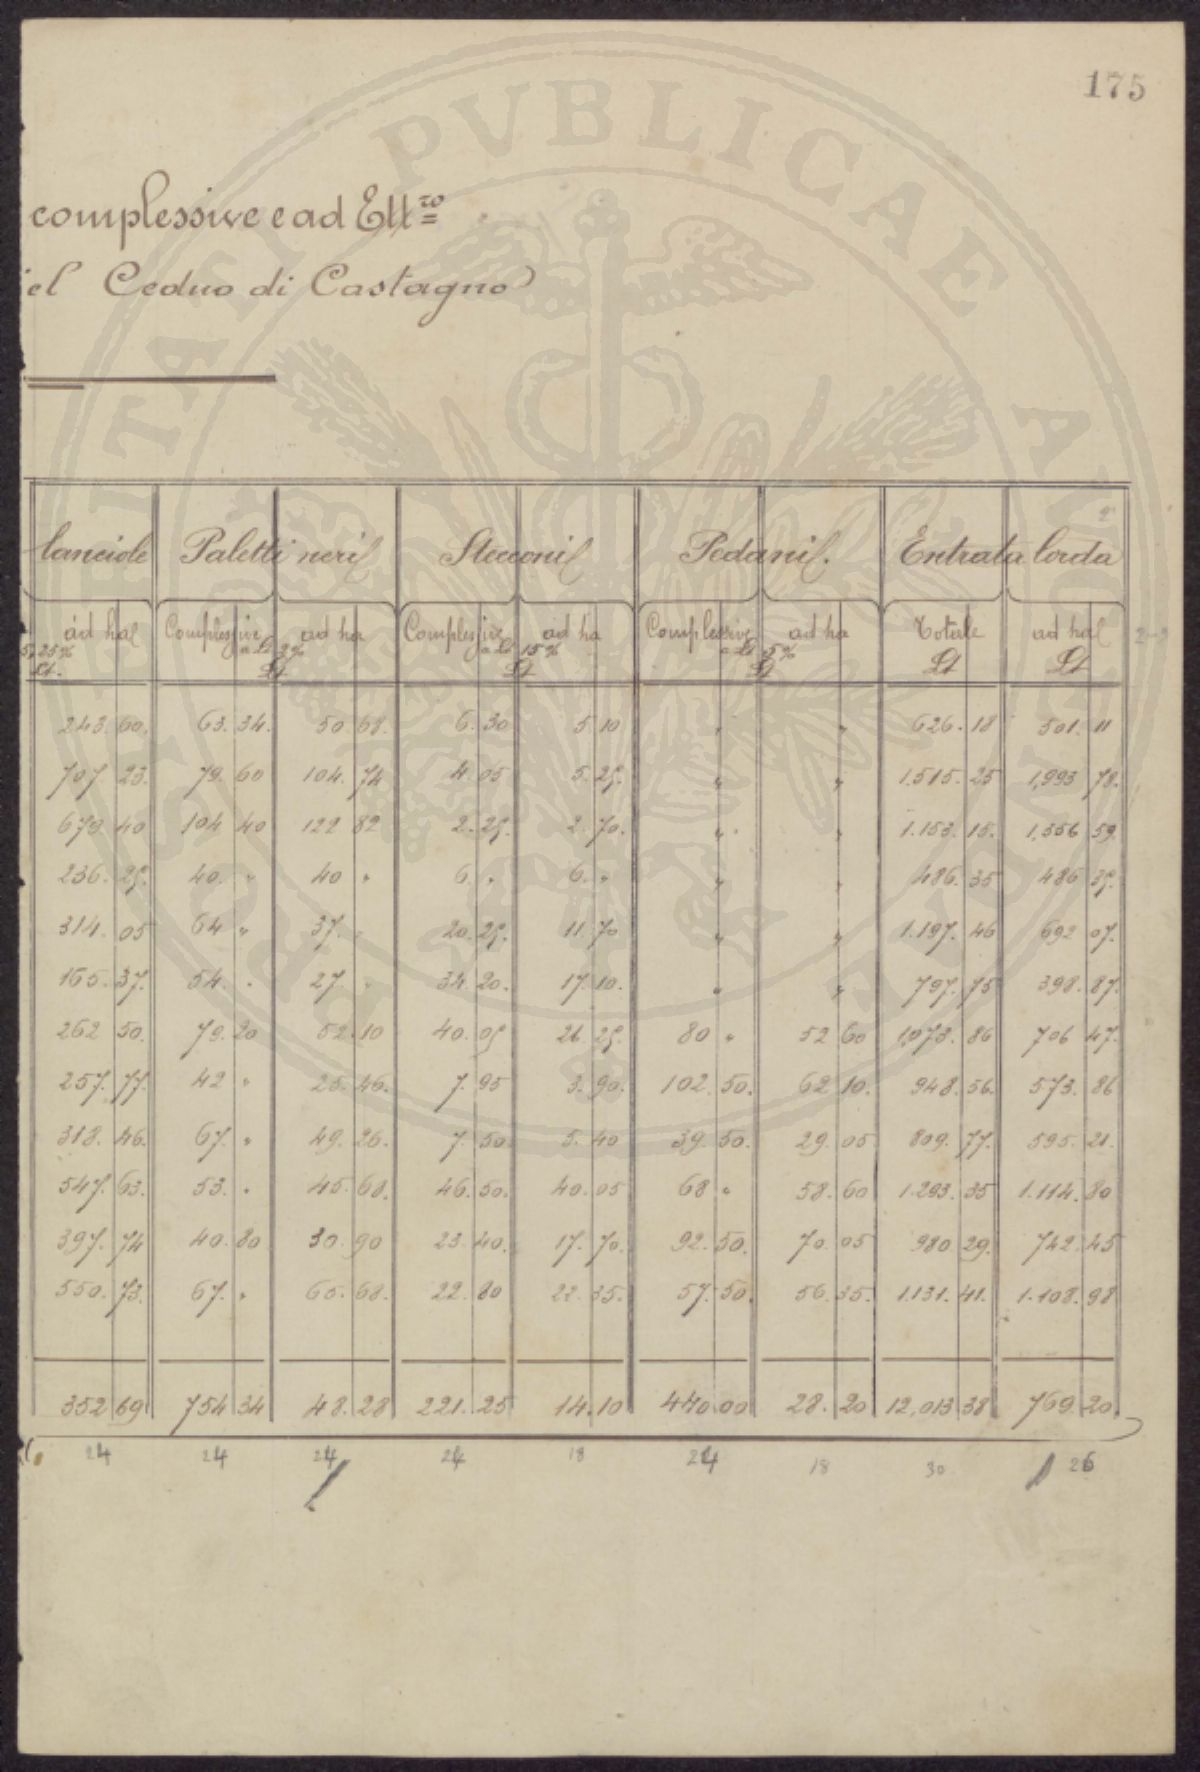 175
complessive e ad Ett.ro
el Ceduo di Castagno
lanciole Paletti neri Stecconi Pedani. Entrata lorda
ad ha Complessive ad ha Complessive ad ha Complessive ad ha Totale ad ha
5,25% a Lt 2% a Lt 15% a Lt 5% Lt Lt
Lt. Lt Lt Lt
243. 60. 63. 34. 50 68. 6. 30 5. 10 " " 626. 18 501. 11
707 23. 79. 60 104. 74 4. 05 5. 25. " " 1.515. 25 1,993 78.
679. 40 104 40 122 82 2. 25. 2. 70. " " 1.153. 15. 1,356 59.
236. 25. 40. " 40 " 6. " 6. " " " 486. 35 486 35.
314. 05 64 " 37. " 20. 25. 11. 70 " " 1.197. 46 692 07.
165. 37. 54. " 27. " 34. 20. 17. 10. " " 797. 75 398. 87.
262 50. 79. 20 52. 10 40. 05 26. 25. 80 " 52 60 1,073. 86 706 47.
257. 77. 42 " 25. 46. 7. 95 3. 90. 102. 50. 62 10. 948. 56. 573. 86
318. 46. 67. " 49. 26. 7. 50. 5. 40 39. 50. 29. 05 809. 77. 595. 21.
547. 63. 53. " 45. 68. 46. 50. 40. 05 68 " 58. 60 1.293. 35 1.114. 80
397. 74 40. 80 30. 90 23. 40. 17. 70. 92. 50. 70. 05 980 29. 742. 45
550. 73. 67. " 65. 68. 22. 80 22. 35. 57. 50. 56. 35. 1.131. 41. 1.108. 98
352 69 754 34 48. 28 221. 25 14. 10 440. 00 28. 20 12,013 38 769. 20
24 24 24 24 18 24 18 30 26
PUBLICAE